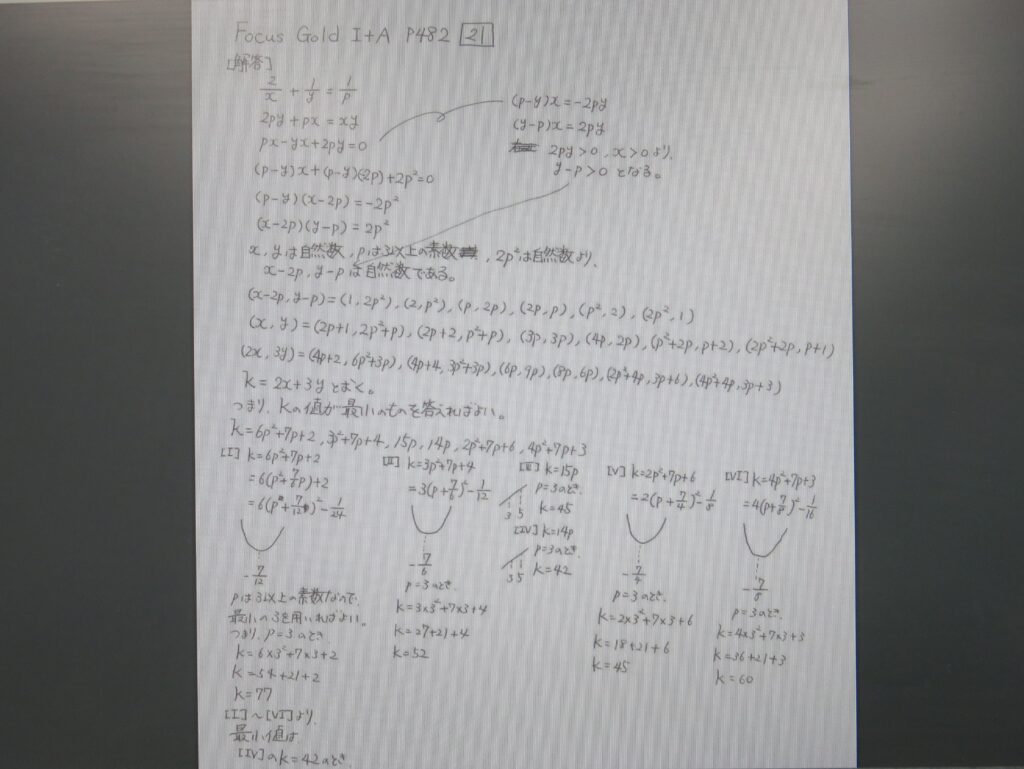 Focus Gold I+A P482 21
[解答]
2/x + 1/y = 1/p
2py+px=xy
px-yx+2py=0
(p-y)x+(p-y)(-2p)+2p²=0
(p-y)(x-2p)=-2p²
(x-2p)(y-p)=2p²
(p-y)x=-2py
(y-p)x=2py
2py>0, x>0より,
y-p>0となる。
x, yは自然数, pは3以上の素数, 2p²は自然数より,
x-2p, y-pは自然数である。
(x-2p, y-p)=(1, 2p²), (2, p²), (p, 2p), (2p, p), (p², 2), (2p², 1)
(x, y)=(2p+1, 2p²+p), (2p+2, p²+p), (3p, 3p), (4p, 2p), (p²+2p, p+2), (2p²+2p, p+1)
(2x, 3y)=(4p+2, 6p²+3p), (4p+4, 3p²+3p), (6p, 9p), (8p, 6p), (2p²+4p, 3p+6), (4p²+4p, 3p+3)
k=2x+3yとおく。
つまり, kの値が最小のものを答えればよい。
k=6p²+7p+2, 3p²+7p+4, 15p, 14p, 2p²+7p+6, 4p²+7p+3
[I] k=6p²+7p+2
=6(p²+7/6p)+2
=6(p+7/12)²-1/24
-7/12
pは3以上の素数なので,
最小の3を用いればよい。
つまり, p=3のとき
k=6×3²+7×3+2
k=54+21+2
k=77
[II] k=3p²+7p+4
=3(p+7/6)²-1/12
-7/6
p=3のとき,
k=3×3²+7×3+4
k=27+21+4
k=52
[III] k=15p
p=3のとき,
3 5
k=45
[IV] k=14p
p=3のとき,
3 5
k=42
[V] k=2p²+7p+6
=2(p+7/4)²-1/8
-7/4
p=3のとき,
k=2×3²+7×3+6
k=18+21+6
k=45
[VI] k=4p²+7p+3
=4(p+7/8)²-1/16
-7/8
p=3のとき,
k=4×3²+7×3+3
k=36+21+3
k=60
[I]～[VI]より,
最小値は,
[IV]のk=42のとき,